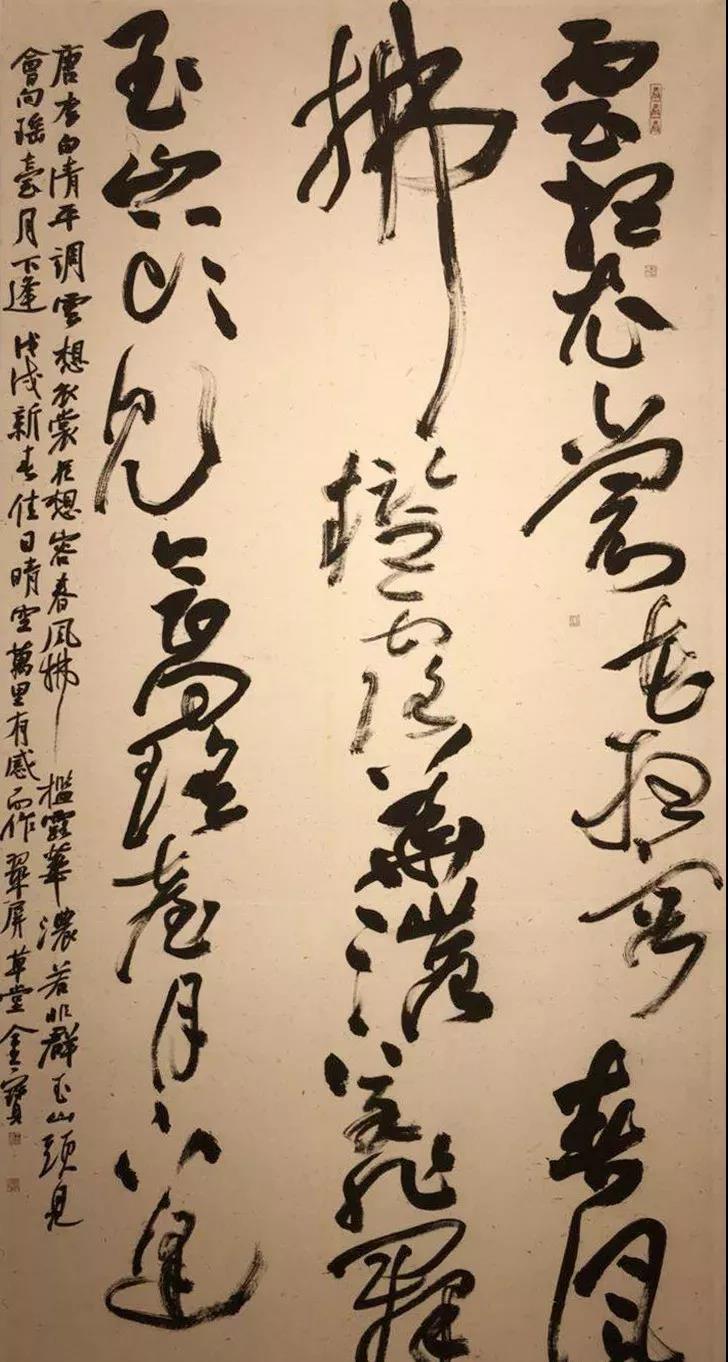 雲想衣裳花想容春風
拂檻露華濃若非群
玉山頭見會向瑤臺月下逢
唐李白清平調雲想衣裳花想容春風拂檻露華濃若非群玉山頭見
會向瑤臺月下逢戊戌新春佳日晴空萬里有感而作翠屏草堂金寶